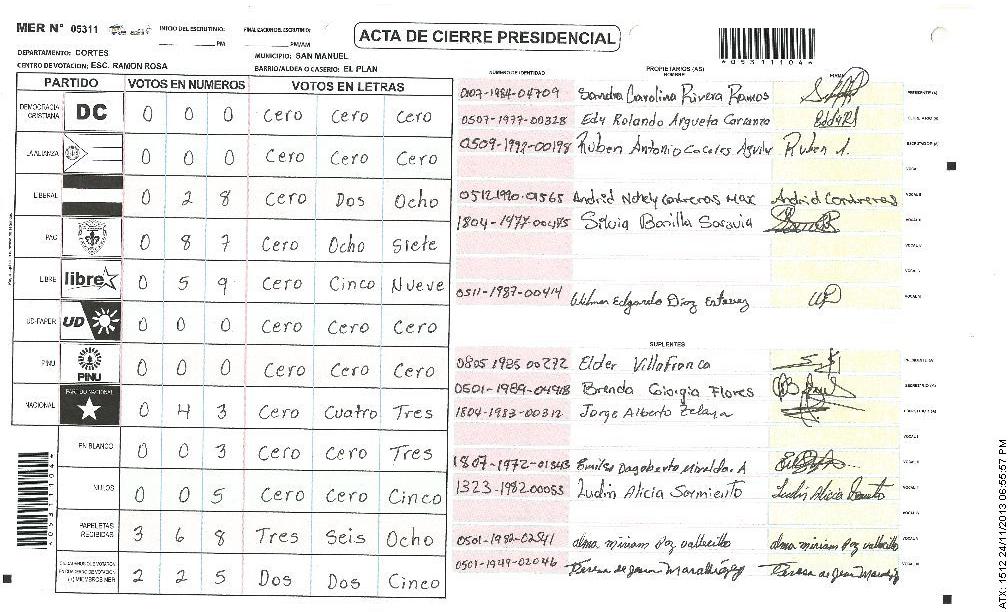 MER N° 05311 INICIO DEL ESCRUTINIO: FINALIZACION DEL ESCRUTINIO:
PM PM/AM
ACTA DE CIERRE PRESIDENCIAL
*05311104*
DEPARTAMENTO: CORTES MUNICIPIO: SAN MANUEL
CENTRO DE VOTACION: ESC. RAMON ROSA BARRIO/ALDEA O CASERIO: EL PLAN
PARTIDO VOTOS EN NUMEROS VOTOS EN LETRAS
DEMOCRACIA CRISTIANA DC 0 0 0 Cero Cero Cero
LA ALIANZA 0 0 0 Cero Cero Cero
LIBERAL 0 2 8 Cero Dos Ocho
PAC 0 8 7 Cero Ocho Siete
LIBRE libre 0 5 9 Cero Cinco Nueve
UD-FAPER UD 0 0 0 Cero Cero Cero
PINU PINU 0 0 0 Cero Cero Cero
NACIONAL PARTIDO NACIONAL 0 4 3 Cero Cuatro Tres
EN BLANCO 0 0 3 Cero Cero Tres
NULOS 0 0 5 Cero Cero Cinco
PAPELETAS RECIBIDAS 3 6 8 Tres Seis Ocho
2 2 5 Dos Dos Cinco
*05311104*
NUMERO DE IDENTIDAD PROPIETARIOS (AS) NOMBRE FIRMA
0107-1984-04709 Sandra Carolina Rivera Ramos
0507-1977-00328 Edy Rolando Argueta Carranza
0509-1992-00198 Ruben Antonio Caceres Aguilar Ruben A.
0512-1990-01565 Andrid Nohely Contreras Max Andrid Contreras
1804-1977-00485 Silvia Bonilla Saravia
0511-1987-00414 Wilmer Edgardo Diaz Estevez
SUPLENTES
0805 1985 00272 Elder Villafranca
0501-1989-04918 Brenda Giorgia Flores
1804-1983-00312 Jorge Alberto Zelaya
1807-1972-01343 Emilso Dagoberto A
1323-1982-00053 Ludin Alicia Sarmiento Ludin Alicia
0501-1982-02541 alma miriam Paz vallecillo alma miriam Paz vallecillo
0501-1949-02046 Teresa de Jesus Teresa de Jesus
ATX: 1512 24/11/2013 06:55:57 PM